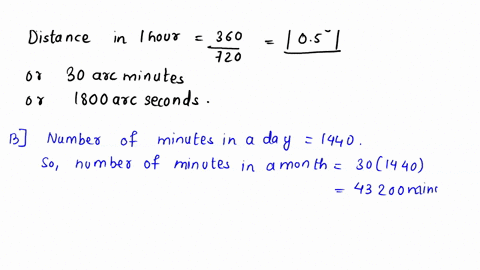 Distance in 1 hour = 360/720 = |0.5°|
or 30 arc minutes
or 1800 arc seconds.
B] Number of minutes in a day = 1440.
So, number of minutes in a month = 30(1440)
= 43200 mins